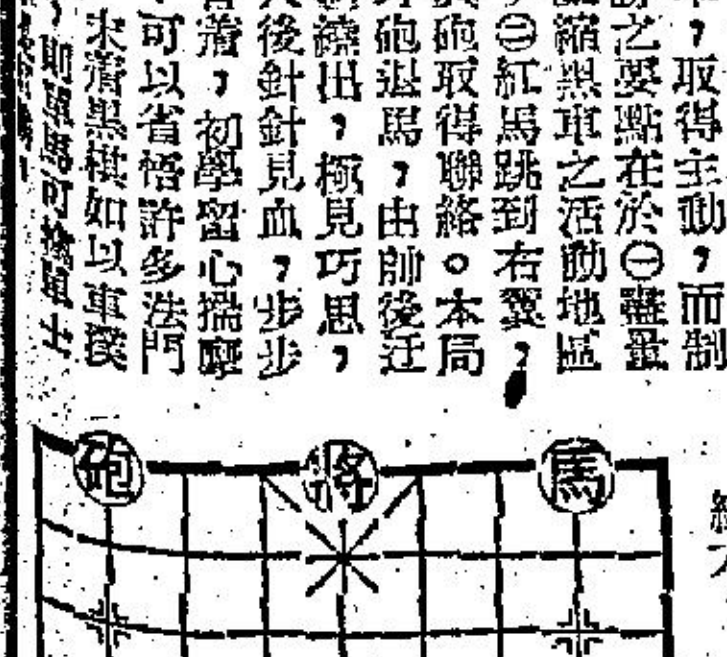 ，取得主動，而制
之要點在於㊀盡量
縮黑車之活動地區
㊁紅馬跳到右翼，
砲取得聯絡。本局
砲退馬，由帥後迂
繞出，極見巧思，
後針針見血，步步
着，初學留心揣摩
可以省悟許多法門
末着黑棋如以車
，則單馬可擒單士
砲
將
馬